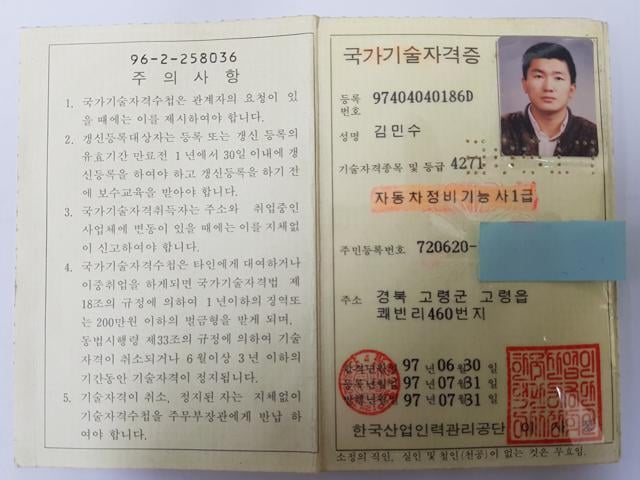 96-2-258036
주 의 사 항
1. 국가기술자격수첩은 관계자의 요청이 있
을 때에는 이를 제시하여야 합니다.
2. 갱신등록대상자는 등록 또는 갱신 등록의
유효기간 만료전 1년에서 30일 이내에 갱
신등록을 하여야 하고 갱신등록을 하기 전
에 보수교육을 받아야 합니다.
3. 국가기술자격취득자는 주소와 취업중인
사업체에 변동이 있을 때에는 이를 지체없
이 신고하여야 합니다.
4. 국가기술자격수첩은 타인에게 대여하거나
이중취업을 하게되면 국가기술자격법 제
18조의 규정에 의하여 1년이하의 징역또
는 200만원 이하의 벌금형을 받게 되며,
동법시행령 제33조의 규정에 의하여 기술
자격이 취소되거나 6월이상 3년 이하의
기간동안 기술자격이 정지됩니다.
5. 기술자격이 취소, 정지된 자는 지체없이
기술자격수첩을 주무부장관에게 반납 하
여야 합니다.
국가기술자격증
등록
번호 97404040186D
성명 김민수
기술자격종목 및 등급 4271
자동차정비기능사1급
주민등록번호 720620-
주소 경북 고령군 고령읍
쾌빈리460번지
합격년월일 97 년 06 월 30 일
등록년월일 97 년 07 월 31 일
발행년월일 97 년 07 월 31 일
한국산업인력관리공단 이 사 장
소정의 직인, 실인 및 철인(천공)이 없는 것은 무효임.